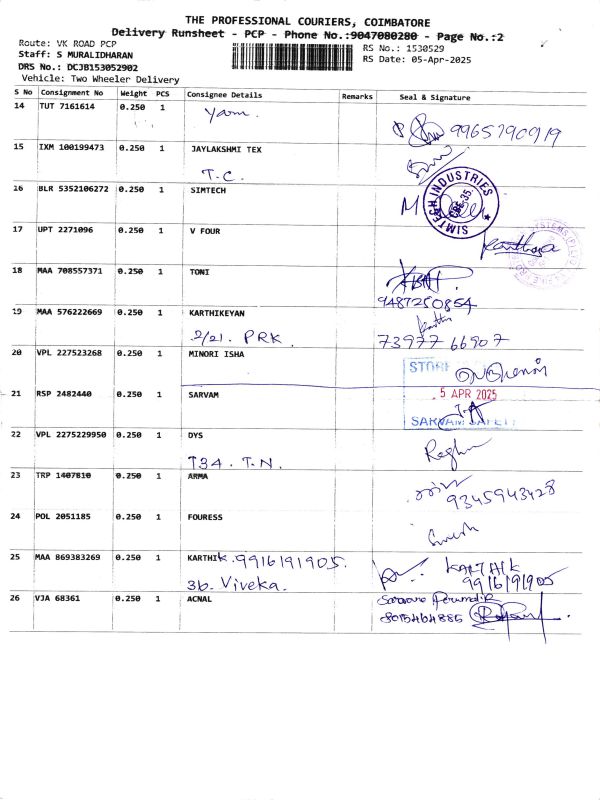 THE PROFESSIONAL COURIERS, COIMBATORE
Delivery Runsheet - PCP - Phone No.:9047080280 - Page No.:2
Route: VK ROAD PCP
RS No.: 1530529
Staff: S MURALIDHARAN
RS Date: 05-Apr-2025
DRS No.: DCJB153052902
Vehicle: Two Wheeler Delivery
S No Consignment No Weight PCS Consignee Details Remarks Seal & Signature
14 TUT 7161614 0.250 1 Yam.
9965790919
15 IXM 100199473 0.250 1 JAYLAKSHMI TEX
T.C.
16 BLR 5352106272 0.250 1 SIMTECH
SIMTECH INDUSTRIES
CBE-35.
17 UPT 2271096 0.250 1 V FOUR
18 MAA 708557371 0.250 1 TONI
9487250854
19 MAA 576222669 0.250 1 KARTHIKEYAN
2/21. PRK.
73977 66907
20 VPL 227523268 0.250 1 MINORI ISHA
21 RSP 2482440 0.250 1 SARVAM
5 APR 2025
SARVAM SAFETY
22 VPL 2275229950 0.250 1 DYS
T34. T.N.
Raghu
23 TRP 1407810 0.250 1 ARMA
9345943428
24 POL 2051185 0.250 1 FOURESS
25 MAA 869383269 0.250 1 KARTHIK. 9916191905.
KARTHIK
9916191905
3b. Viveka.
26 VJA 68361 0.250 1 ACNAL
Saravana Perumal.R
8015464885